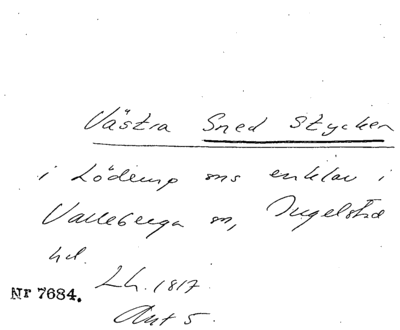 Västra Sned stycken
i Löderup sns enklav i
Valleberga sn, Ingelstad
hd.
Lh. 1817.
Nr 7684.
Akt 5.